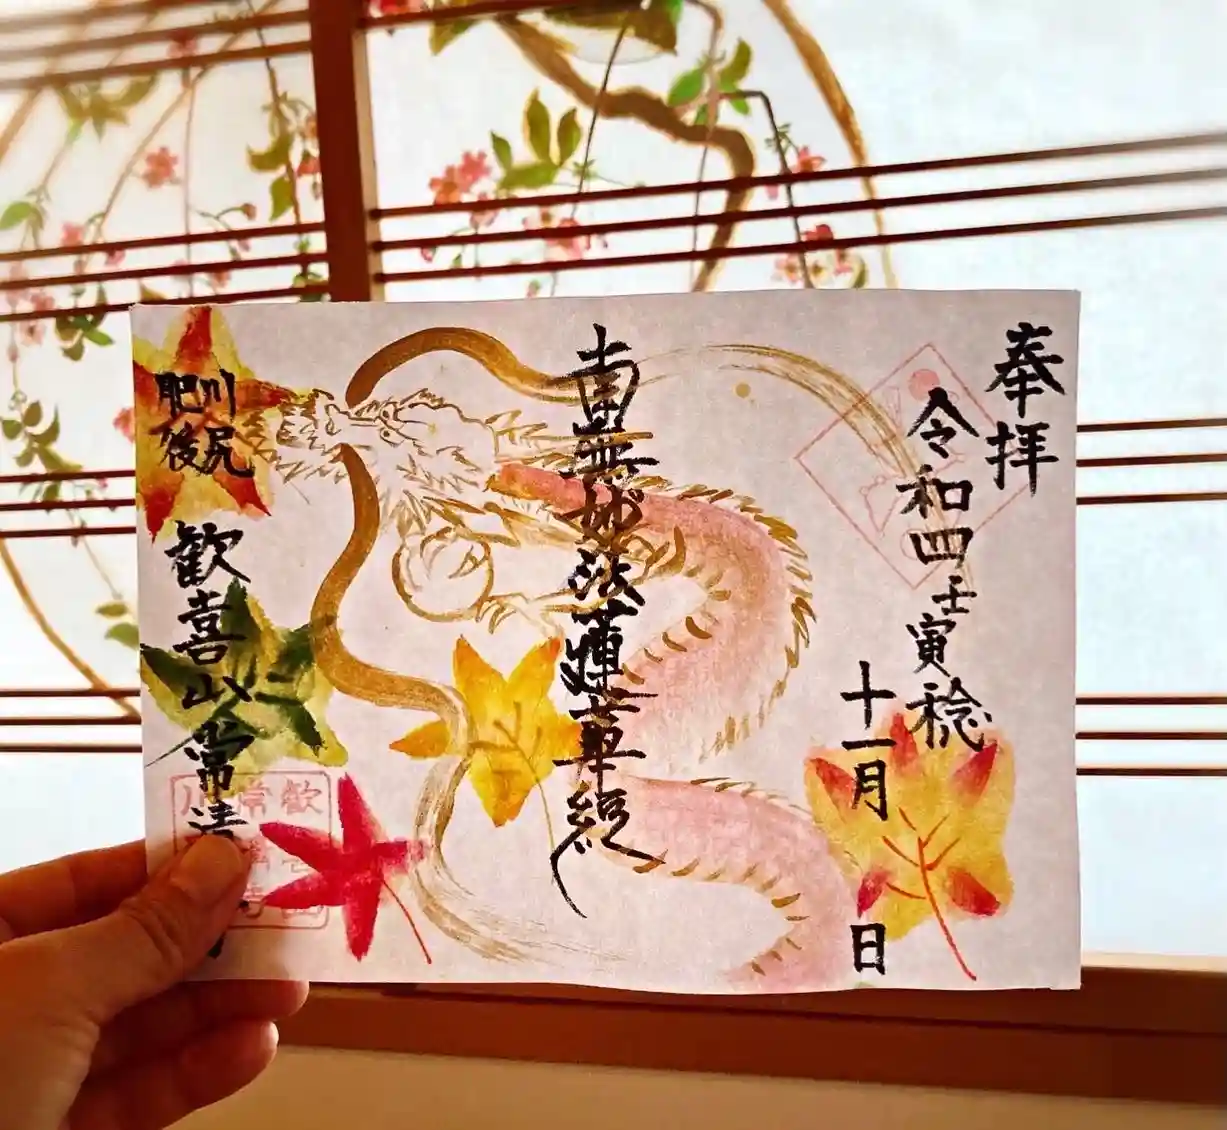 奉拝
令和四壬寅稔
十一月 日
南無妙法蓮華経
川尻
肥後
歓喜山常清